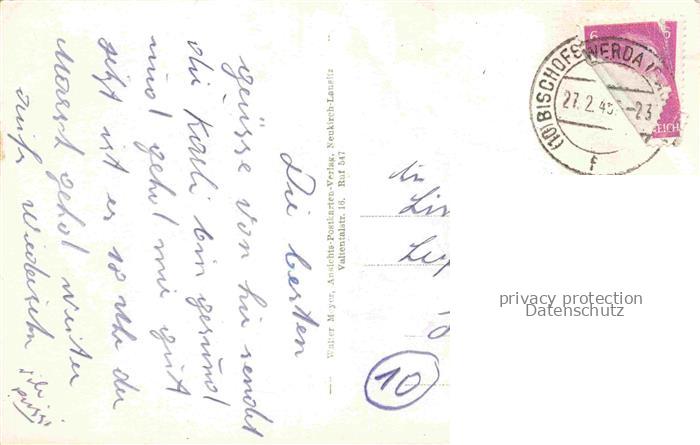 Die besten
grüsse von hir sendet
die Karli bin gesund
und gehd mir gut
jetzt ist es 18 Uhr der
Marsch gehd weiter
aufs Wiedersehn
Walter Meyer, Ansichts-Postkarten-Verlag, Neukirch-Lausitz
Valtentalstr. 16. Ruf 547
(10) BISCHOFSWERDA
27.2.45.-23
F
6
6
REICH
An
10
privacy protection
Datenschutz